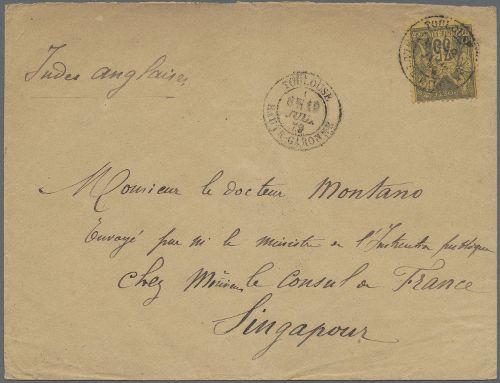 Indes anglaises
TOULOUSE
6E 19
JUIL.
79
HAUTE-GARONNE
TOULOUSE
Monsieur le docteur Montano
Envoyé par le ministre de l'Instruction publique
chez Monsieur le Consul de France
Singapour